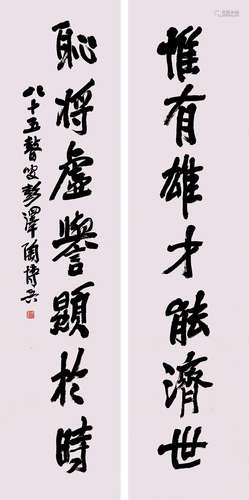 惟有雄才能濟世
恥將虛譽顯於時
八十五瞽叟彭澤陶博吾